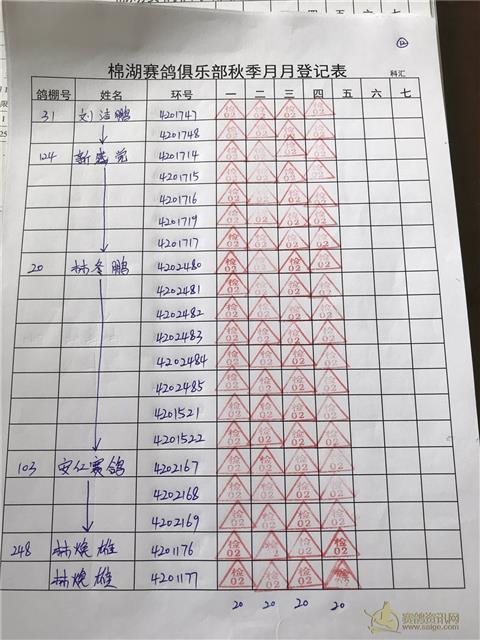 ⑫
棉湖赛鸽俱乐部秋季月月登记表
科汇
鸽棚号 姓名 环号 一 二 三 四 五 六 七
31 刘洁鹏 4201747 检02 检02 检02 检02
4201748 检02 检02 检02 检02
124 4201714 检02 检02 检02 检02
4201715 检02 检02 检02 检02
4201716 检02 检02 检02 检02
4201719 检02 检02 检02 检02
4201717 检02 检02 检02 检02
20 林冬鹏 4202480 检02 检02 检02 检02
4202481 检02 检02 检02 检02
4202482 检02 检02 检02 检02
4202483 检02 检02 检02 检02
4202484 检02 检02 检02 检02
4202485 检02 检02 检02 检02
4201521 检02 检02 检02 检02
4201522 检02 检02 检02 检02
103 安仁赛鸽 4202167 检02 检02 检02 检02
4202168 检02 检02 检02 检02
4202169 检02 检02 检02 检02
248 林焕雄 4201176 检02 检02 检02 检02
林焕雄 4201177 检02 检02 检02
20 20 20 20
赛鸽资讯网
www.saige.com